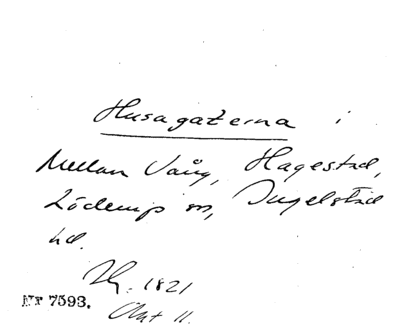 Husagaterna i
Mellan Vång, Hagestad,
Löderup sn, Ingelstad
hd.
1821
Nr 7593. Akt 11.